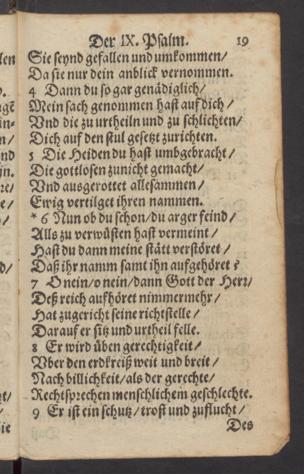 Der IX. Psalm. 19
Sie seynd gefallen und umkommen/
Da sie nur dein anblick vernommen.
4 Dann du so gar genädiglich/
Mein sach genommen hast auf dich/
Vnd die zu urtheiln und zu schlichten/
Dich auf den stul gesetzt zurichten.
5 Die Heiden du hast umbgebracht/
Die gottlosen zunicht gemacht/
Vnd ausgerottet allesammen/
Ewig vertilget ihren nammen.
* 6 Nun ob du schon/du arger feind/
Alls zu verwüsten hast vermeint/
Hast du dann meine stätt verstöret/
Daß ihr namm samt ihn aufgehöret?
7 O nein/o nein/dann Gott der Herr/
Deß reich aufhöret nimmermehr/
Hat zugericht seine richtstelle/
Darauf er sitz und urtheil felle.
8 Er wird üben gerechtigkeit/
Vber den erdkreiß weit und breit/
Nach billichkeit/als der gerechte/
Rechtsprechen menschlichem geschlechte.
9 Er ist ein schutz/trost und zuflucht/
Des